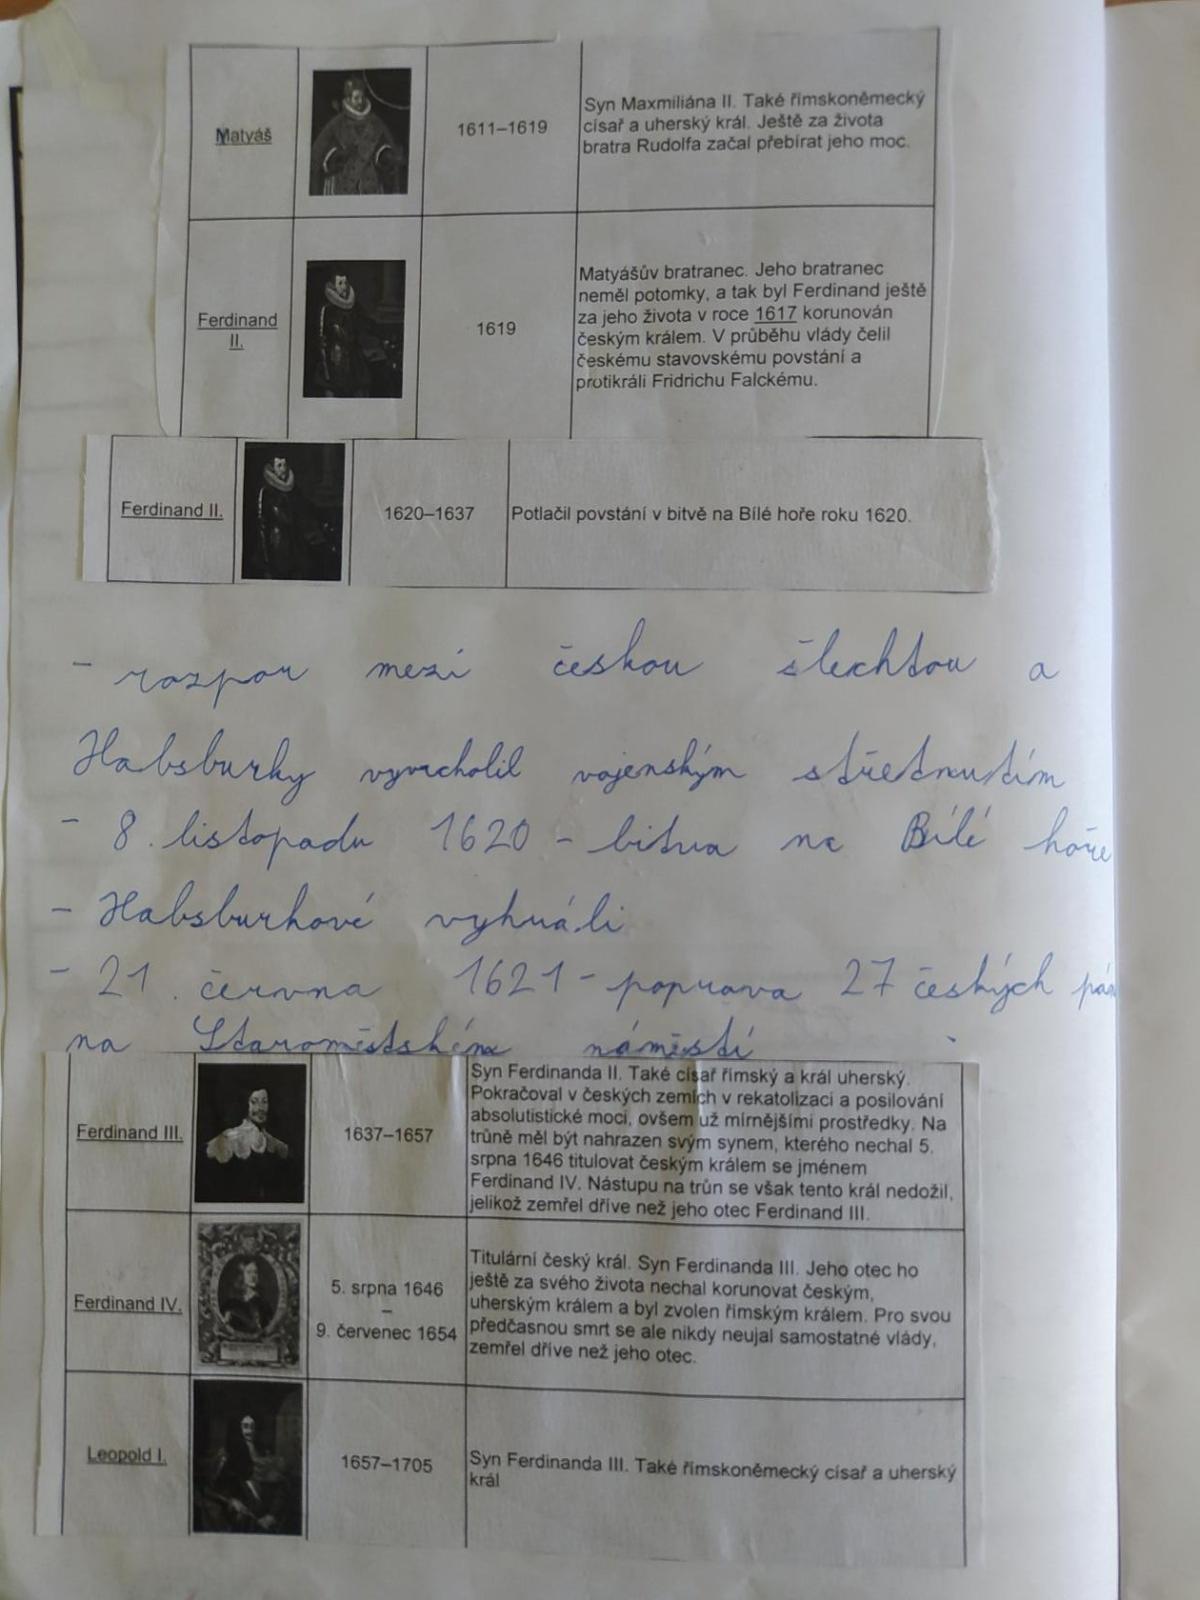 Matyáš
1611–1619
Syn Maxmiliána II. Také římskoněmecký
císař a uherský král. Ještě za života
bratra Rudolfa začal přebírat jeho moc.
Ferdinand
II.
1619
Matyášův bratranec. Jeho bratranec
neměl potomky, a tak byl Ferdinand ještě
za jeho života v roce 1617 korunován
českým králem. V průběhu vlády čelil
českému stavovskému povstání a
protikráli Fridrichu Falckému.
Ferdinand II.
1620–1637
Potlačil povstání v bitvě na Bílé hoře roku 1620.
- rozpor mezi českou šlechtou a
Habsburky vyvrcholil vojenským střetnutím
- 8. listopadu 1620 - bitva na Bílé hoře
- Habsburkové vyhráli
- 21. června 1621 - poprava 27 českých
na Staroměstském náměstí
Ferdinand III.
1637–1657
Syn Ferdinanda II. Také císař římský a král uherský.
Pokračoval v českých zemích v rekatolizaci a posilování
absolutistické moci, ovšem už mírnějšími prostředky. Na
trůně měl být nahrazen svým synem, kterého nechal 5.
srpna 1646 titulovat českým králem se jménem
Ferdinand IV. Nástupu na trůn se však tento král nedožil,
jelikož zemřel dříve než jeho otec Ferdinand III.
Ferdinand IV.
5. srpna 1646
–
9. červenec 1654
Titulární český král. Syn Ferdinanda III. Jeho otec ho
ještě za svého života nechal korunovat českým,
uherským králem a byl zvolen římským králem. Pro svou
předčasnou smrt se ale nikdy neujal samostatné vlády,
zemřel dříve než jeho otec.
Leopold I.
1657–1705
Syn Ferdinanda III. Také římskoněmecký císař a uherský
král